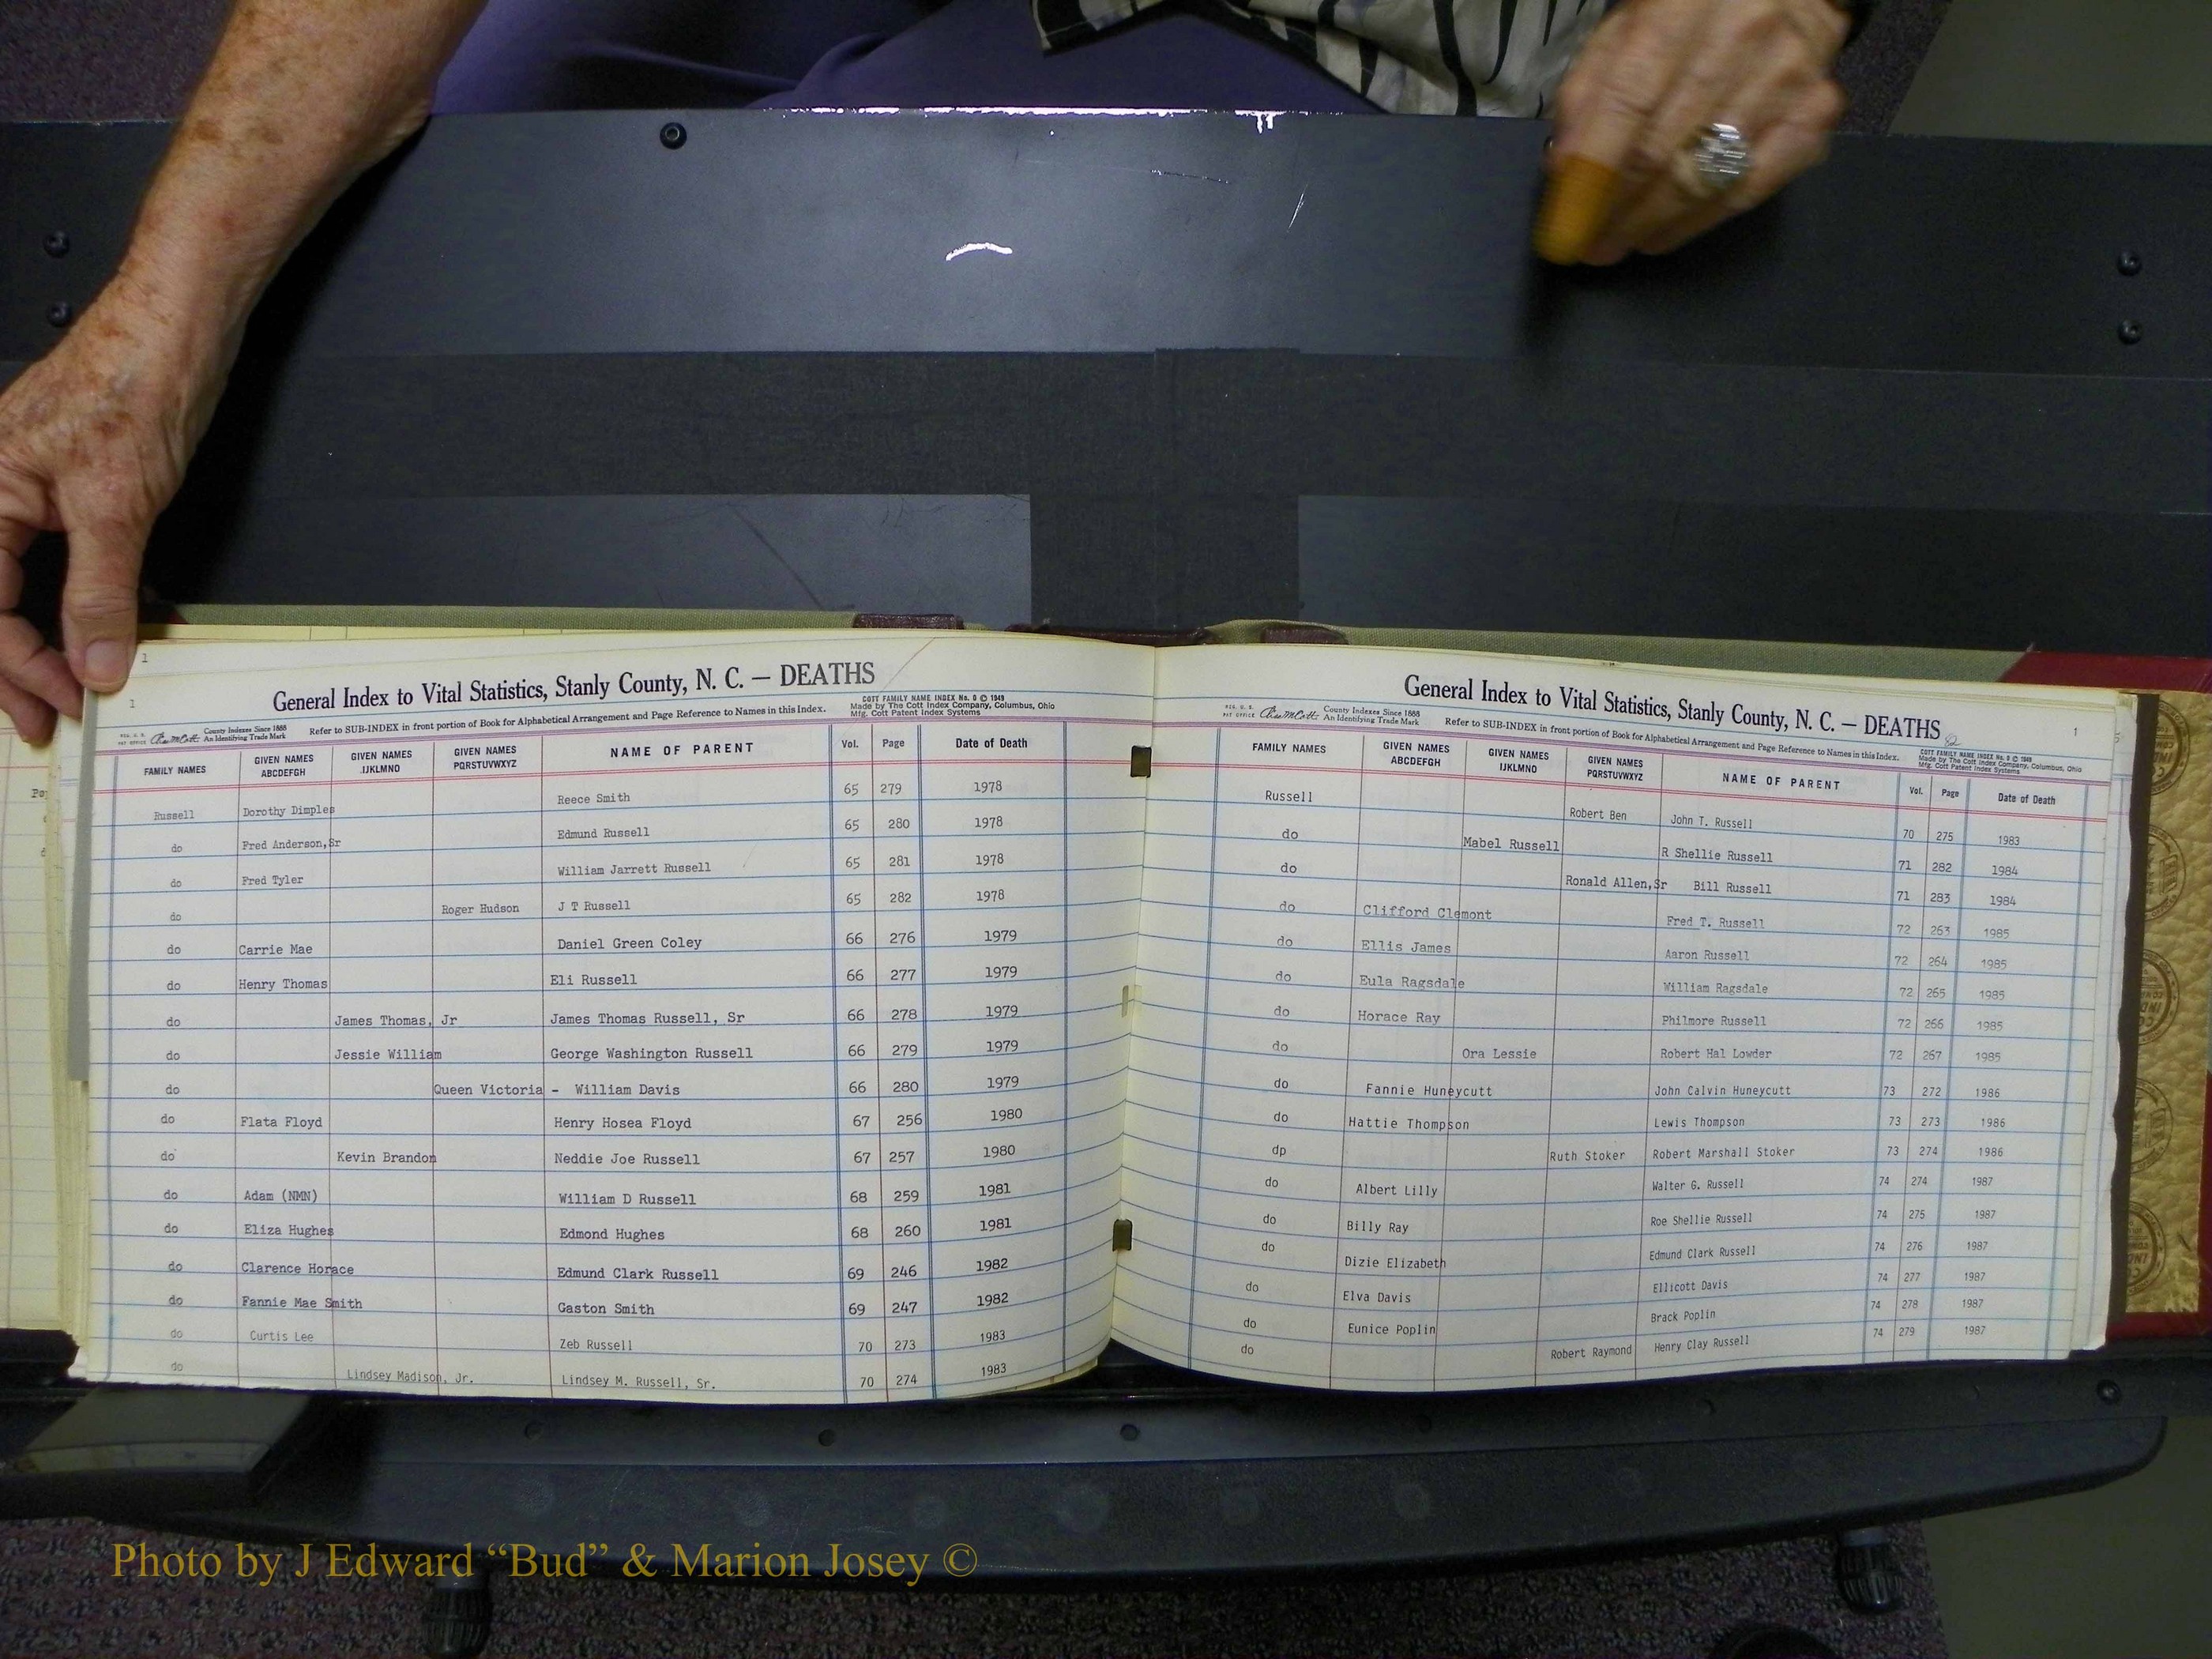 1
1
General Index to Vital Statistics, Stanly County, N. C. — DEATHS
REG. U. S. PAT OFFICE
County Indexes Since 1888
An Identifying Trade Mark
Refer to SUB-INDEX in front portion of Book for Alphabetical Arrangement and Page Reference to Names in this Index.
COTT FAMILY NAME INDEX No. 0 © 1949
Made by The Cott Index Company, Columbus, Ohio
Mfg. Cott Patent Index Systems
FAMILY NAMES GIVEN NAMES ABCDEFGH GIVEN NAMES IJKLMNO GIVEN NAMES PQRSTUVWXYZ NAME OF PARENT Vol. Page Date of Death
Russell Dorothy Dimples Reece Smith 65 279 1978
do Fred Anderson,Sr Edmund Russell 65 280 1978
do Fred Tyler William Jarrett Russell 65 281 1978
do Roger Hudson J T Russell 65 282 1978
do Carrie Mae Daniel Green Coley 66 276 1979
do Henry Thomas Eli Russell 66 277 1979
do James Thomas, Jr James Thomas Russell, Sr 66 278 1979
do Jessie William George Washington Russell 66 279 1979
do Queen Victoria - William Davis 66 280 1979
do Flata Floyd Henry Hosea Floyd 67 256 1980
do Kevin Brandon Neddie Joe Russell 67 257 1980
do Adam (NMN) William D Russell 68 259 1981
do Eliza Hughes Edmond Hughes 68 260 1981
do Clarence Horace Edmund Clark Russell 69 246 1982
do Fannie Mae Smith Gaston Smith 69 247 1982
do Curtis Lee Zeb Russell 70 273 1983
do Lindsey Madison, Jr. Lindsey M. Russell, Sr. 70 274 1983
General Index to Vital Statistics, Stanly County, N. C. — DEATHS
1
REG. U. S. PAT OFFICE
County Indexes Since 1888
An Identifying Trade Mark
Refer to SUB-INDEX in front portion of Book for Alphabetical Arrangement and Page Reference to Names in this Index.
COTT FAMILY NAME INDEX No. 0 © 1949
Made by The Cott Index Company, Columbus, Ohio
Mfg. Cott Patent Index Systems
FAMILY NAMES GIVEN NAMES ABCDEFGH GIVEN NAMES IJKLMNO GIVEN NAMES PQRSTUVWXYZ NAME OF PARENT Vol. Page Date of Death
Russell Robert Ben John T. Russell 70 275 1983
do Mabel Russell R Shellie Russell 71 282 1984
do Ronald Allen,Sr Bill Russell 71 283 1984
do Clifford Clemont Fred T. Russell 72 263 1985
do Ellis James Aaron Russell 72 264 1985
do Eula Ragsdale William Ragsdale 72 265 1985
do Horace Ray Philmore Russell 72 266 1985
do Ora Lessie Robert Hal Lowder 72 267 1985
do Fannie Huneycutt John Calvin Huneycutt 73 272 1986
do Hattie Thompson Lewis Thompson 73 273 1986
dp Ruth Stoker Robert Marshall Stoker 73 274 1986
do Albert Lilly Walter G. Russell 74 274 1987
do Billy Ray Roe Shellie Russell 74 275 1987
do Dizie Elizabeth Edmund Clark Russell 74 276 1987
do Elva Davis Ellicott Davis 74 277 1987
do Eunice Poplin Brack Poplin 74 278 1987
do Robert Raymond Henry Clay Russell 74 279 1987
Photo by J Edward “Bud” & Marion Josey ©